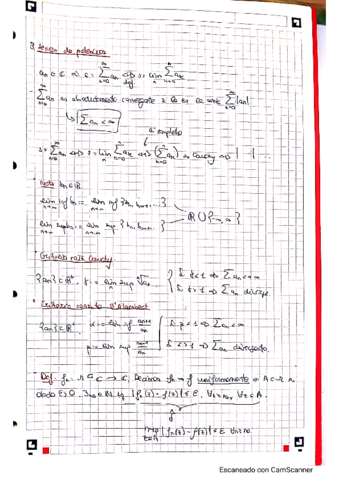 3 Series de potencias
aₙ ∈ ℂ s = Σ aₙ ⟺ s = lim Σ aₖ
Σ aₙ es absolutamente convergente si lo es la serie Σ |aₙ|
Σ aₙ < ∞
ℂ completo
s = Σ aₙ ⟺ s = lim Σ aₖ ⟺ (Σ aₖ) es Cauchy
Nota bₙ ∈ ℝ
lim inf bₙ := lim inf {bₙ, bₙ₊₁, ...}
ℝ ∪ {-∞, ∞}
lim sup bₙ := lim sup {bₙ, bₙ₊₁ ...}
Criterio raíz Cauchy
{aₙ} ⊂ ℝ⁺, γ = lim sup ⁿ√aₙ
Si γ < 1 ⟹ Σ aₙ < ∞
Si γ > 1 ⟹ Σ aₙ diverge.
Criterio cociente D'Alambert
{aₙ} ⊂ ℝ⁺, α = lim inf aₙ₊₁/aₙ
Si β < 1 ⟹ Σ aₙ < ∞
β = lim sup aₙ₊₁/aₙ
Si α > 1 ⟹ Σ aₙ divergente.
Def. fₙ: Ω ⊂ ℂ → ℂ. Decimos fₙ → f uniformemente en A ⊂ Ω si
dado ε > 0, ∃n₀ ∈ ℕ tq |fₙ(z) - f(z)| ≤ ε, ∀n ≥ n₀, ∀z ∈ A.
sup |fₙ(z) - f(z)| ≤ ε ∀n ≥ n₀.
z∈A
Escaneado con CamScanner